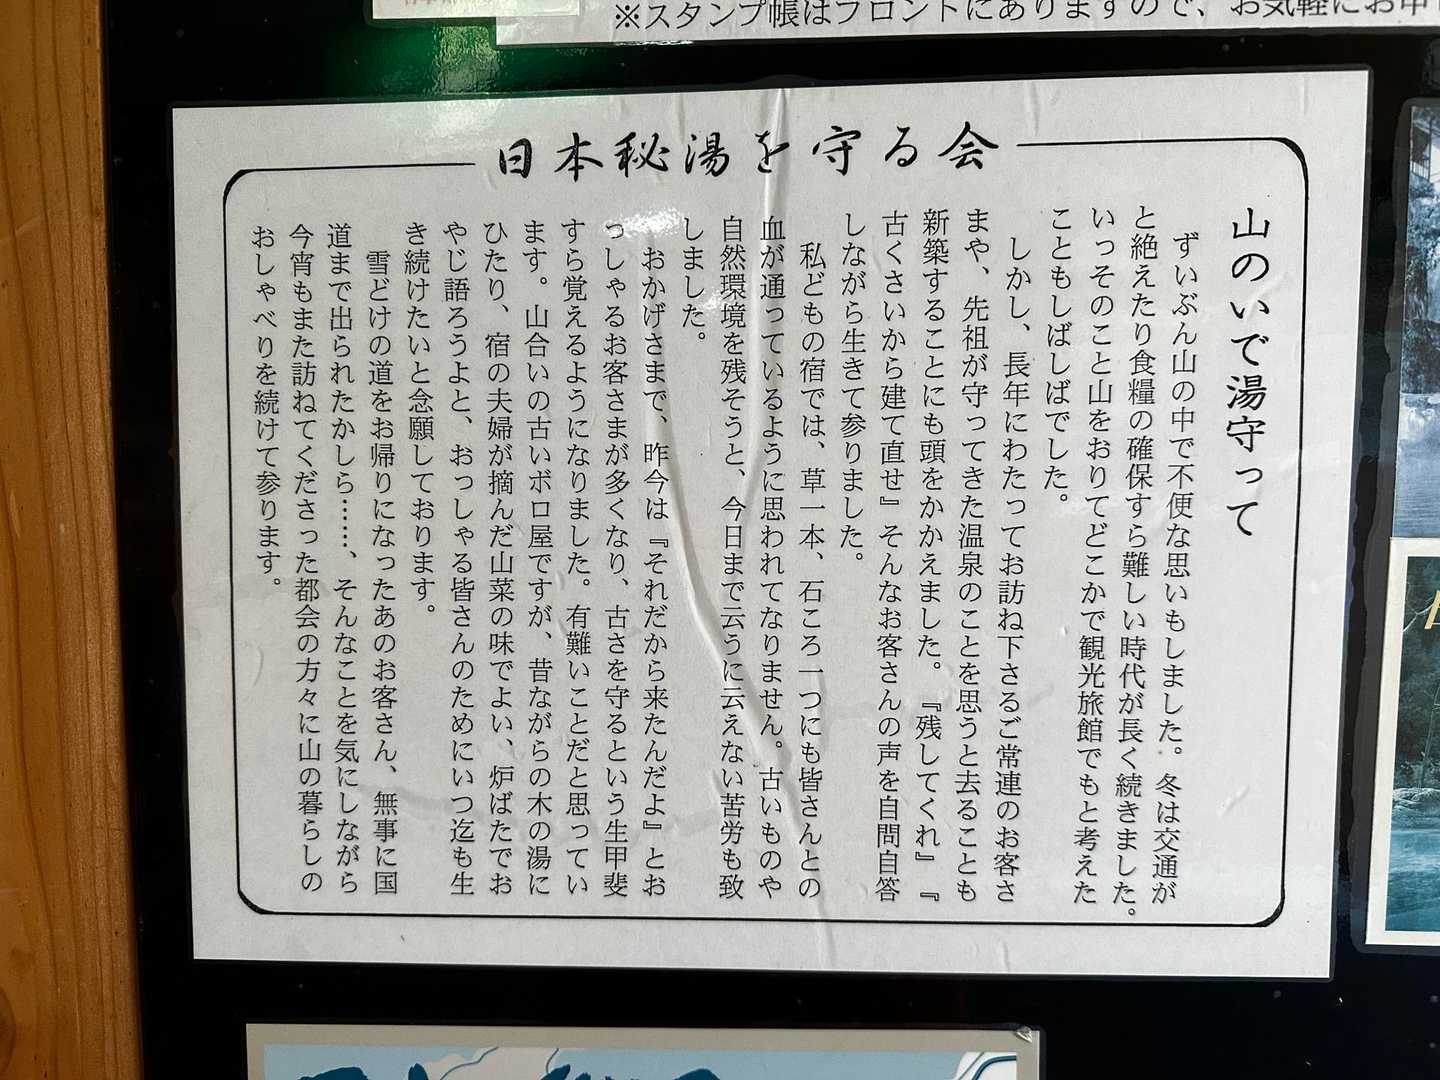 ※スタンプ帳はフロントにありますので、お気軽にお申
日本秘湯を守る会
山のいで湯守って
ずいぶん山の中で不便な思いもしました。冬は交通が
と絶えたり食糧の確保すら難しい時代が長く続きました。
いっそのこと山をおりてどこかで観光旅館でもと考えた
こともしばしばでした。
しかし、長年にわたってお訪ね下さるご常連のお客さ
まや、先祖が守ってきた温泉のことを思うと去ることも
新築することにも頭をかかえました。『残してくれ』『
古くさいから建て直せ』そんなお客さんの声を自問自答
しながら生きて参りました。
私どもの宿では、草一本、石ころ一つにも皆さんとの
血が通っているように思われてなりません。古いものや
自然環境を残そうと、今日まで云うに云えない苦労も致
しました。
おかげさまで、昨今は『それだから来たんだよ』とお
っしゃるお客さまが多くなり、古さを守るという生甲斐
すら覚えるようになりました。有難いことだと思ってい
ます。山合いの古いボロ屋ですが、昔ながらの木の湯に
ひたり、宿の夫婦が摘んだ山菜の味でよい、炉ばたでお
やじ語ろうよと、おっしゃる皆さんのためにいつ迄も生
き続けたいと念願しております。
雪どけの道をお帰りになったあのお客さん、無事に国
道まで出られたかしら……、そんなことを気にしながら
今宵もまた訪ねてくださった都会の方々に山の暮らしの
おしゃべりを続けて参ります。